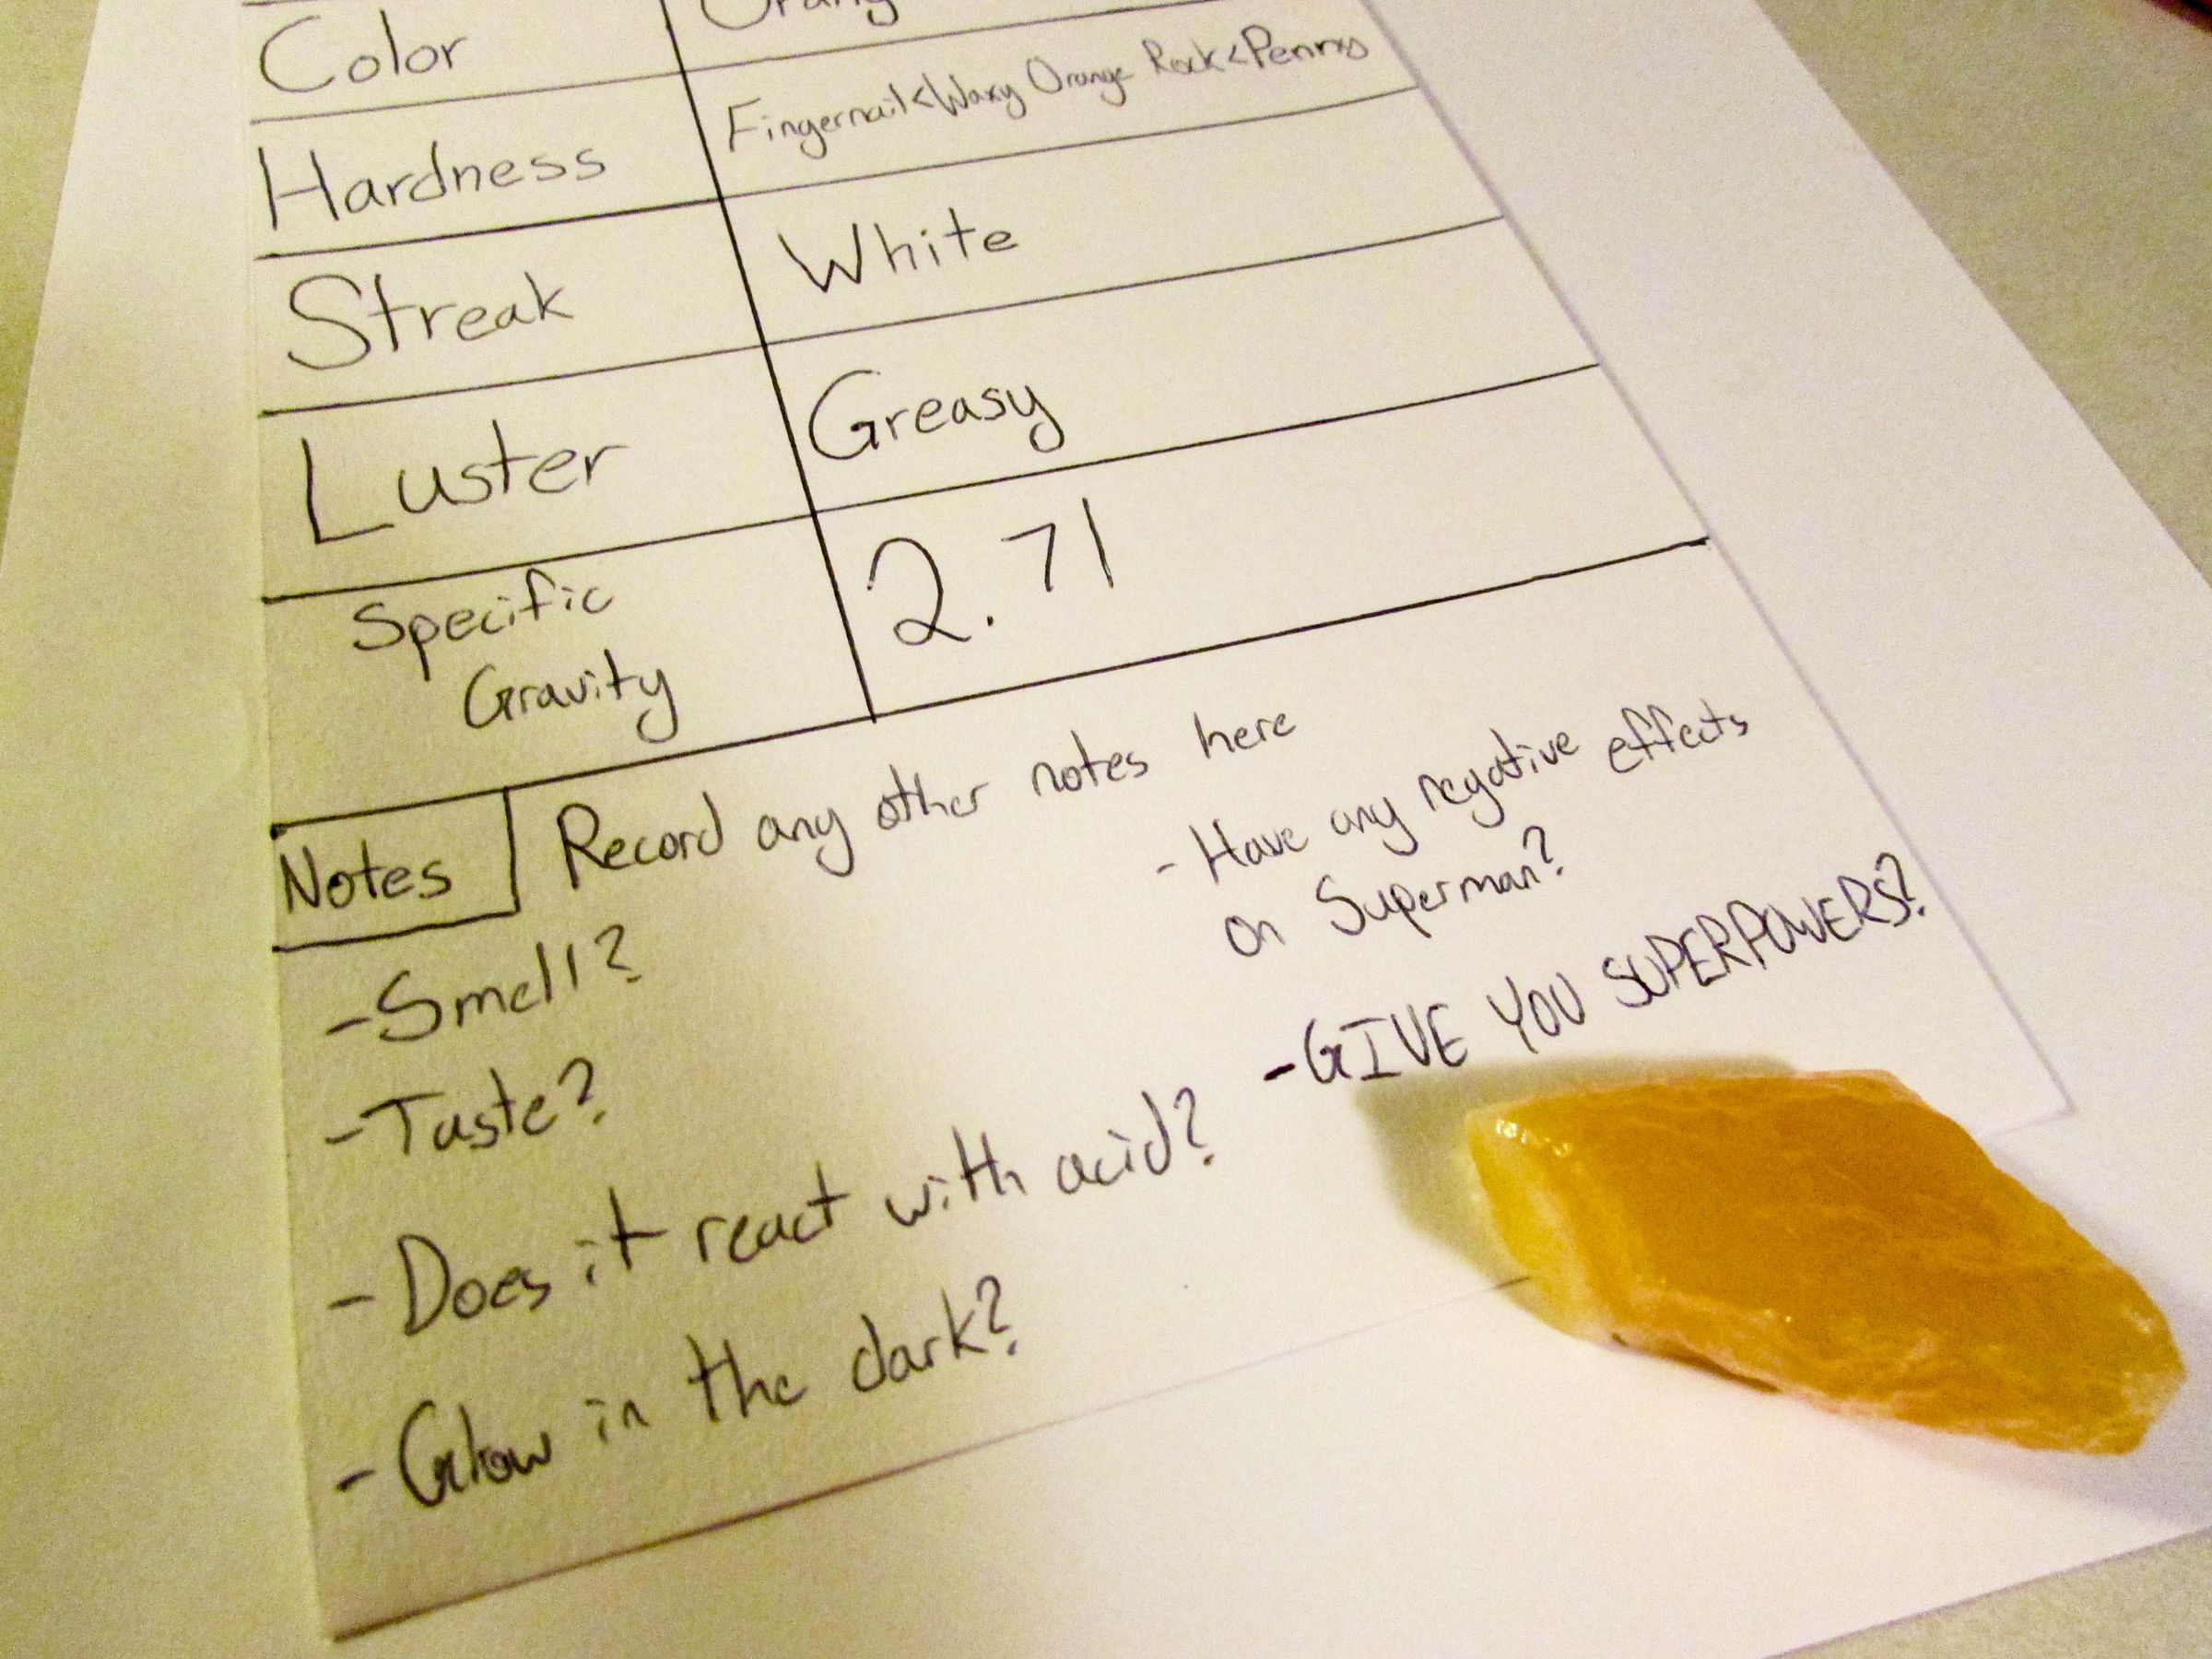 Color
Hardness Fingernail<Waxy Orange Rock<Penny
Streak White
Luster Greasy
Specific
Gravity
2.71
Notes Record any other notes here
-Smell?
-Taste?
- Does it react with acid?
- Glow in the dark?
- Have any negative effects
on Superman?
-GIVE YOU SUPERPOWERS?